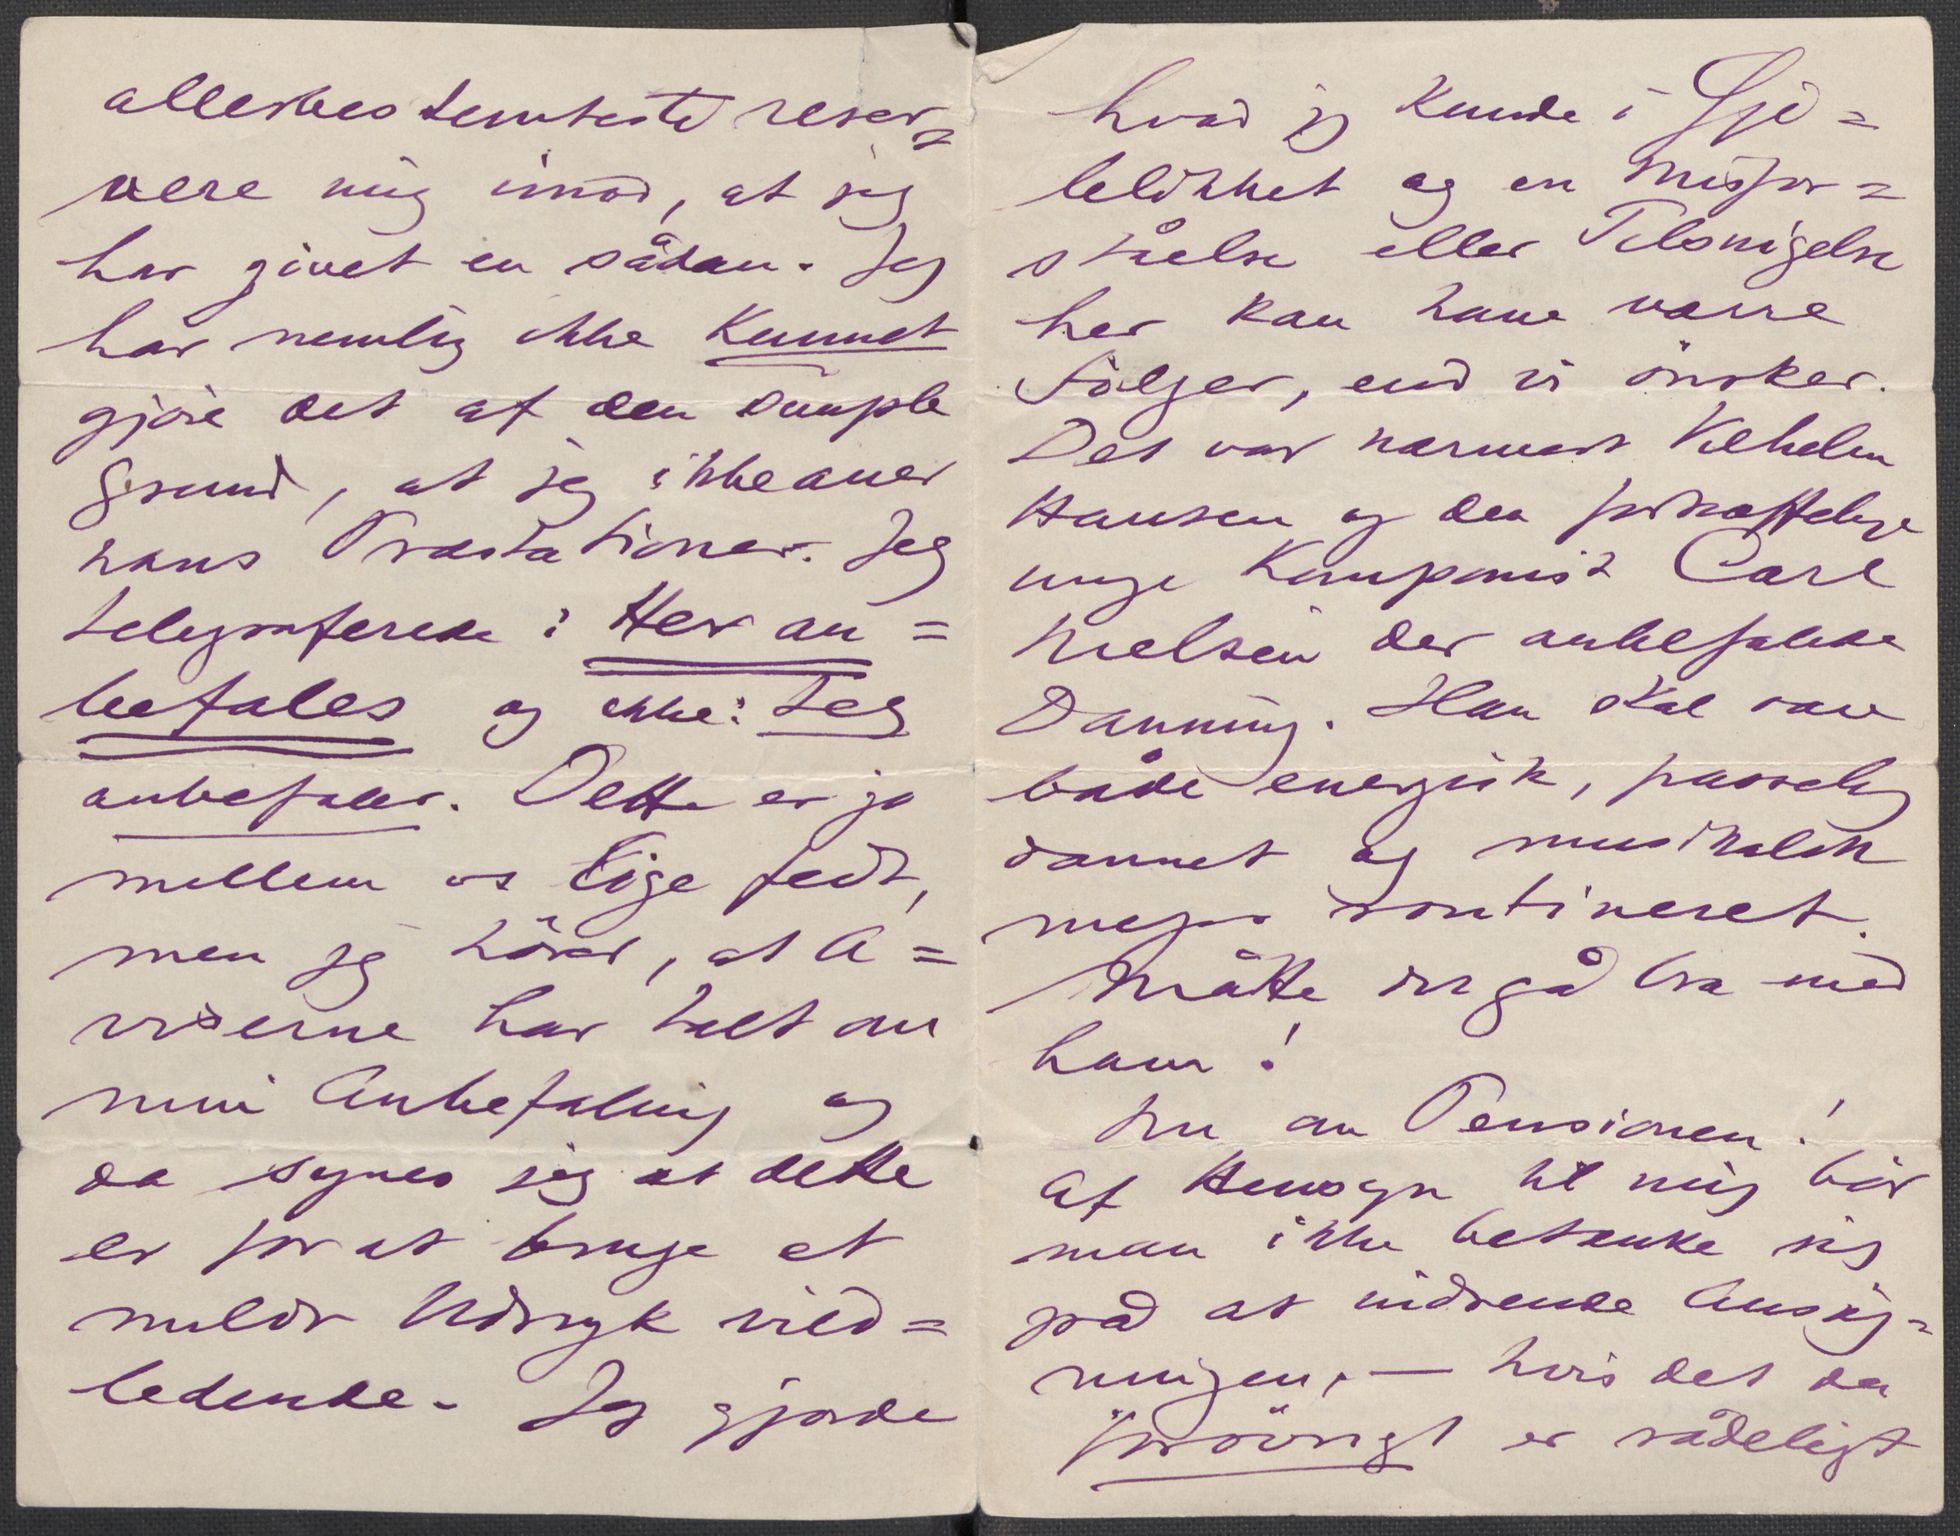 allerbestemteste reser=
vere mig imod, at jeg
har givet en sådan. Jeg
har nemlig ikke kunnet
gjøre det af den simple
Grund, at jeg ikke aner
hans Præstationer. Jeg
telegraferede: Her an=
befales og ikke: Jeg
anbefaler. Dette er jo
mellem os lige fedt,
men jeg hörer, at A=
viserne har talt om
min Anbefaling og
da synes jeg at dette
er for at bruge et
mildt Udtryk vild=
ledende. Jeg gjorde
hvad jeg kunde i Øje=
blikket og en Misfor=
ståelse eller Tilsnigelse
her kan have værre
Fölger, end vi önsker.
Det var nærmest Vilhelm
Hansen og den fortræffelige
unge Komponist Carl
Nielsen der anbefalede
Danning. Han skal være
både energisk, passelig
dannet og musikalsk
meget routineret.
Måtte det gå bra med
ham!
Nu om Pensionen!
Af Hensyn til mig bör
man ikke betænke sig
på at inddrage Ansög=
ningen, — hvis det da
forövrigt er rådeligt